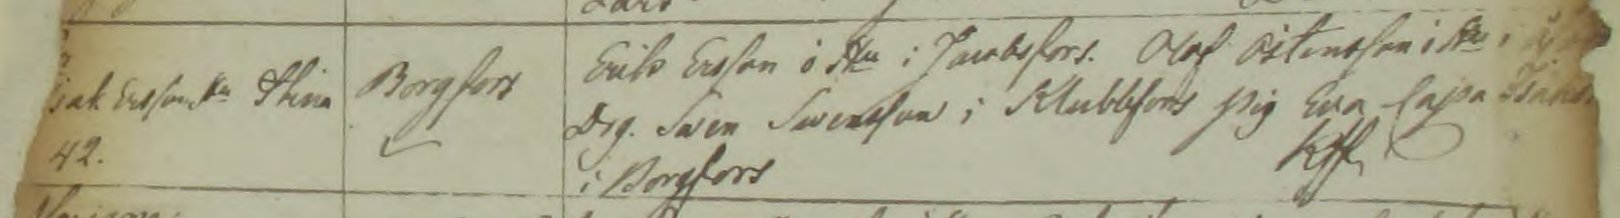 Isak Ersson, Hu Stina
42.
Borgfors
Erik Ersson o Hu i Jacobsfors. Olof Östensson i
Drg. Swen Swensson i Klubbfors pig Eva Cajsa Isaks.
i Borgfors